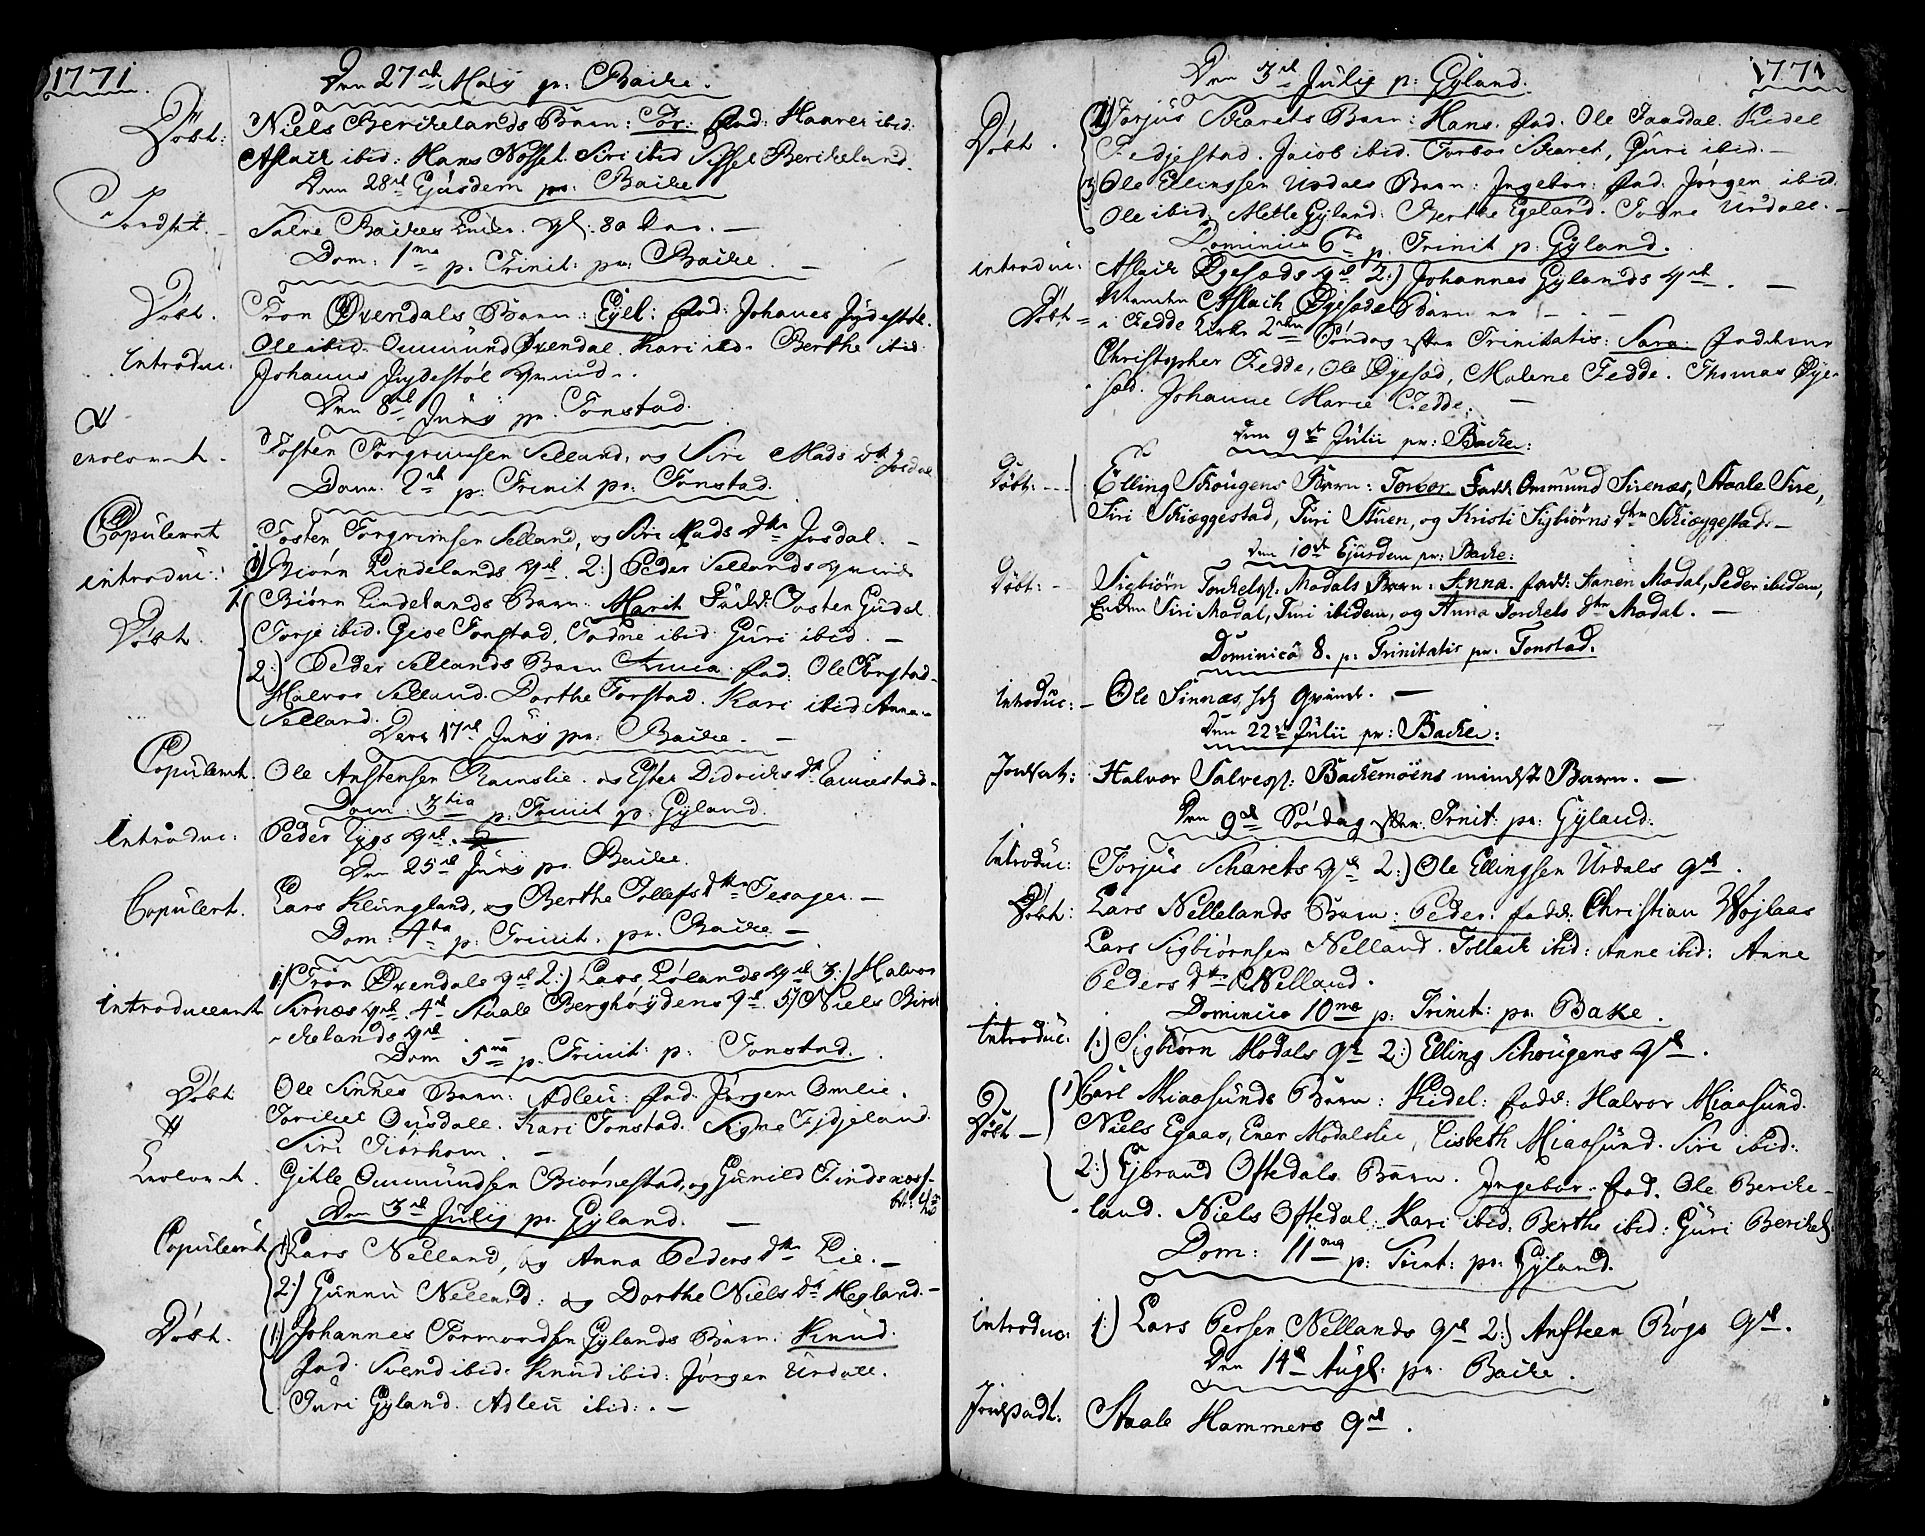 1771
Den 27de Maij pr: Backe.
Döbt: Niels Berckelands Barn: Tor: fad: Haaver ibid:
Aslack ibid: Hans Nosset. Siri ibid Sissel Berckeland.
Den 28de Ejusdem pr: Backe
Jordfæst. Salve Backes Enke. gl: 80 Aar. —
Dom: 1ma p. Trinit: pr: Backe. —
Döbt. Tron Øvendals Barn: Eyel: fad: Johanes Jydestöl.
Ole ibid. Ommund Øvendal. Kari ibid. Berthe ibid:
Introduc. Johanes Jydestöl qvinde.
Den 8de Junij pr. Tonstad.
Trolovet. Tosten Torgrimsen Selland, og Siri Mads dtr Josdal
Dom. 2de p: Trinit pr: Tonstad.
Copuleret Tosten Torgrimsen Selland, og Siri Mads Dtr Josdal. —
introduc: 1) Biørn Lindelands qde. 2:) Peder Sellands qvinde
Döbt. 1 Biørn Lindelands Barn: Marit Fadd: Tosten Gudol
Torje ibid. Gise Tonstad. Todne ibid Guri ibid. —
2:) Peder Sellands Barn Anna. fad: Ole Tonstad
Halvor Selland. Dorthe Tonstad. Kari ibid Anna
Selland.
Den 17de Junij pr: Backe. —
Copuleret. Ole Anstensen Ramslie. og Ester Didrichs dtr
Dom. 3tia p. Trinit p: Gyland.
Introduc: Peder Lygs qde.
Den 25de Junij pr. Backe.
Copulert. Lars Klungland, og Berthe Tollefs dtr Tesager. —
Dom: 4ta p: Trinit. pr. Backe —
Introduceret 1:) Tron Øvendals qde 2:) Lars Lølands qde 3:) Halvor
Sirnæs qde 4de Staale Berghøydens qde. 5) Niels Birck
-elands qde
Dom 5ta p. Trinit: p: Tonstad.
Döbt Ole Sinnes Barn: Adleu: fad: Jørgen Omlie.
Torkel Ousdall. Kari Tonstad. Signe Fjdjeland.
Siri Tiørhom. —
Trolovet. Gitle Ommundsen Biørnestad, og Gunild Tinds
Den 3de Julij pr. Gyland. —
Copuleret 1) Lars Nelland, og Anna Peders dtr Lie. —
2:) Gunnu Nelland: og Dorthe Niels Dtr Hegland. —
Döbt. 1) Johannes Tormondsen Gylands Barn: Knud.
fad. Svend ibid. Knud ibid: Jörgen Urdall.
Turi Gyland. Adleu ibid: . —
1771
Den 3de Julij p: Gyland.
Döbt. 1) Torjus Skarets Barn: Hans. fad. Ole Jaasdal. Kidel
Fedjestad. Jacob ibid. Torbor Skaret, Guri ibid. —
2 Ole Ellingsen Urdals Barn: Ingebor: fad: Jørgen ibid.
Ole ibid. Mette Gyland: Berthe Egeland. Todne Urdall. —
Dominica 6ta p. Trinit p: Gyland.
introduc: Aslack Øgesads qde 2:) Johannes Gylands qde. —
Döbt Aslach Øgesads Barn er —
i Fedde Kirke 2den Söndag efter Trinitatis: Sara: fadderne
Christopher Fedde, Ole Øgesad, Malene Fedde. Thomas Øge-
sad. Johanne Marie Fedde. —
Den 9de Julii pr: Backe:
Döbt: Elling Skougens Barn: Torbor. Fadd. Ommund Sirenæs, Staale Sire,
Siri Skiæggestad, Turi Stuen, og Kristi Sigbiørns dtr Skiæggestad. —
Den 10de Ejusdem pr: Backe:
Döbt: Sigbiørn Torkelss: Modals Barn: Anna. fadd: Hanen Modal, Peder ibidem,
Enken Siri Modal, Turi ibidem, og Anna Torkels dtr Modal. —
Dominica 8. p. Trinitatis pr. Tonstad.
Introduc: Ole Sinnæs, hs qvinde. —
Den 22de Julii pr: Backe:
Jordfæst: Halvor Salvess: Backemöens mindste Barn. —
Den 9de Söndag efter Trinit: pr: Gyland:
Introduc: Torjus Skarets qde 2:) Ole Ellingsen Urdals qde.
Döbt: Lars Nellelands Barn: Peder: fadd: Christian Højlaas
Lars Sigbiørnsen Nelland. Tollack ibid: Anne ibid: Anne
Peders dtr Nelland.
Dominica 10ma p: Trinit: pr. Bake.
Introduc: 1:) Sigbiørn Modals qde 2:) Elling Schougens qde.
Döbt 1) Carl Miaasunds Barn: Kidel: fadd: Halvor Miaasund.
Niels Egaas, Ener Modalslie, Lisbeth Miaasund. Siri ibid:
2:) Ejbrand Oftedals Barn. Ingebor. fad. Ole Bercke-
land. Niels Oftedal: Kari ibid: Berthe ibid: Guri Berckel.
Dom: 11ma p: Trint: pr. Gyland.
introduc: 1:) Lars Persen Nellands qde 2:) Ansteen Rögs qde.
Den 14de Augl: pr. Backe.
Jordfæst: Staale Hammers qde.